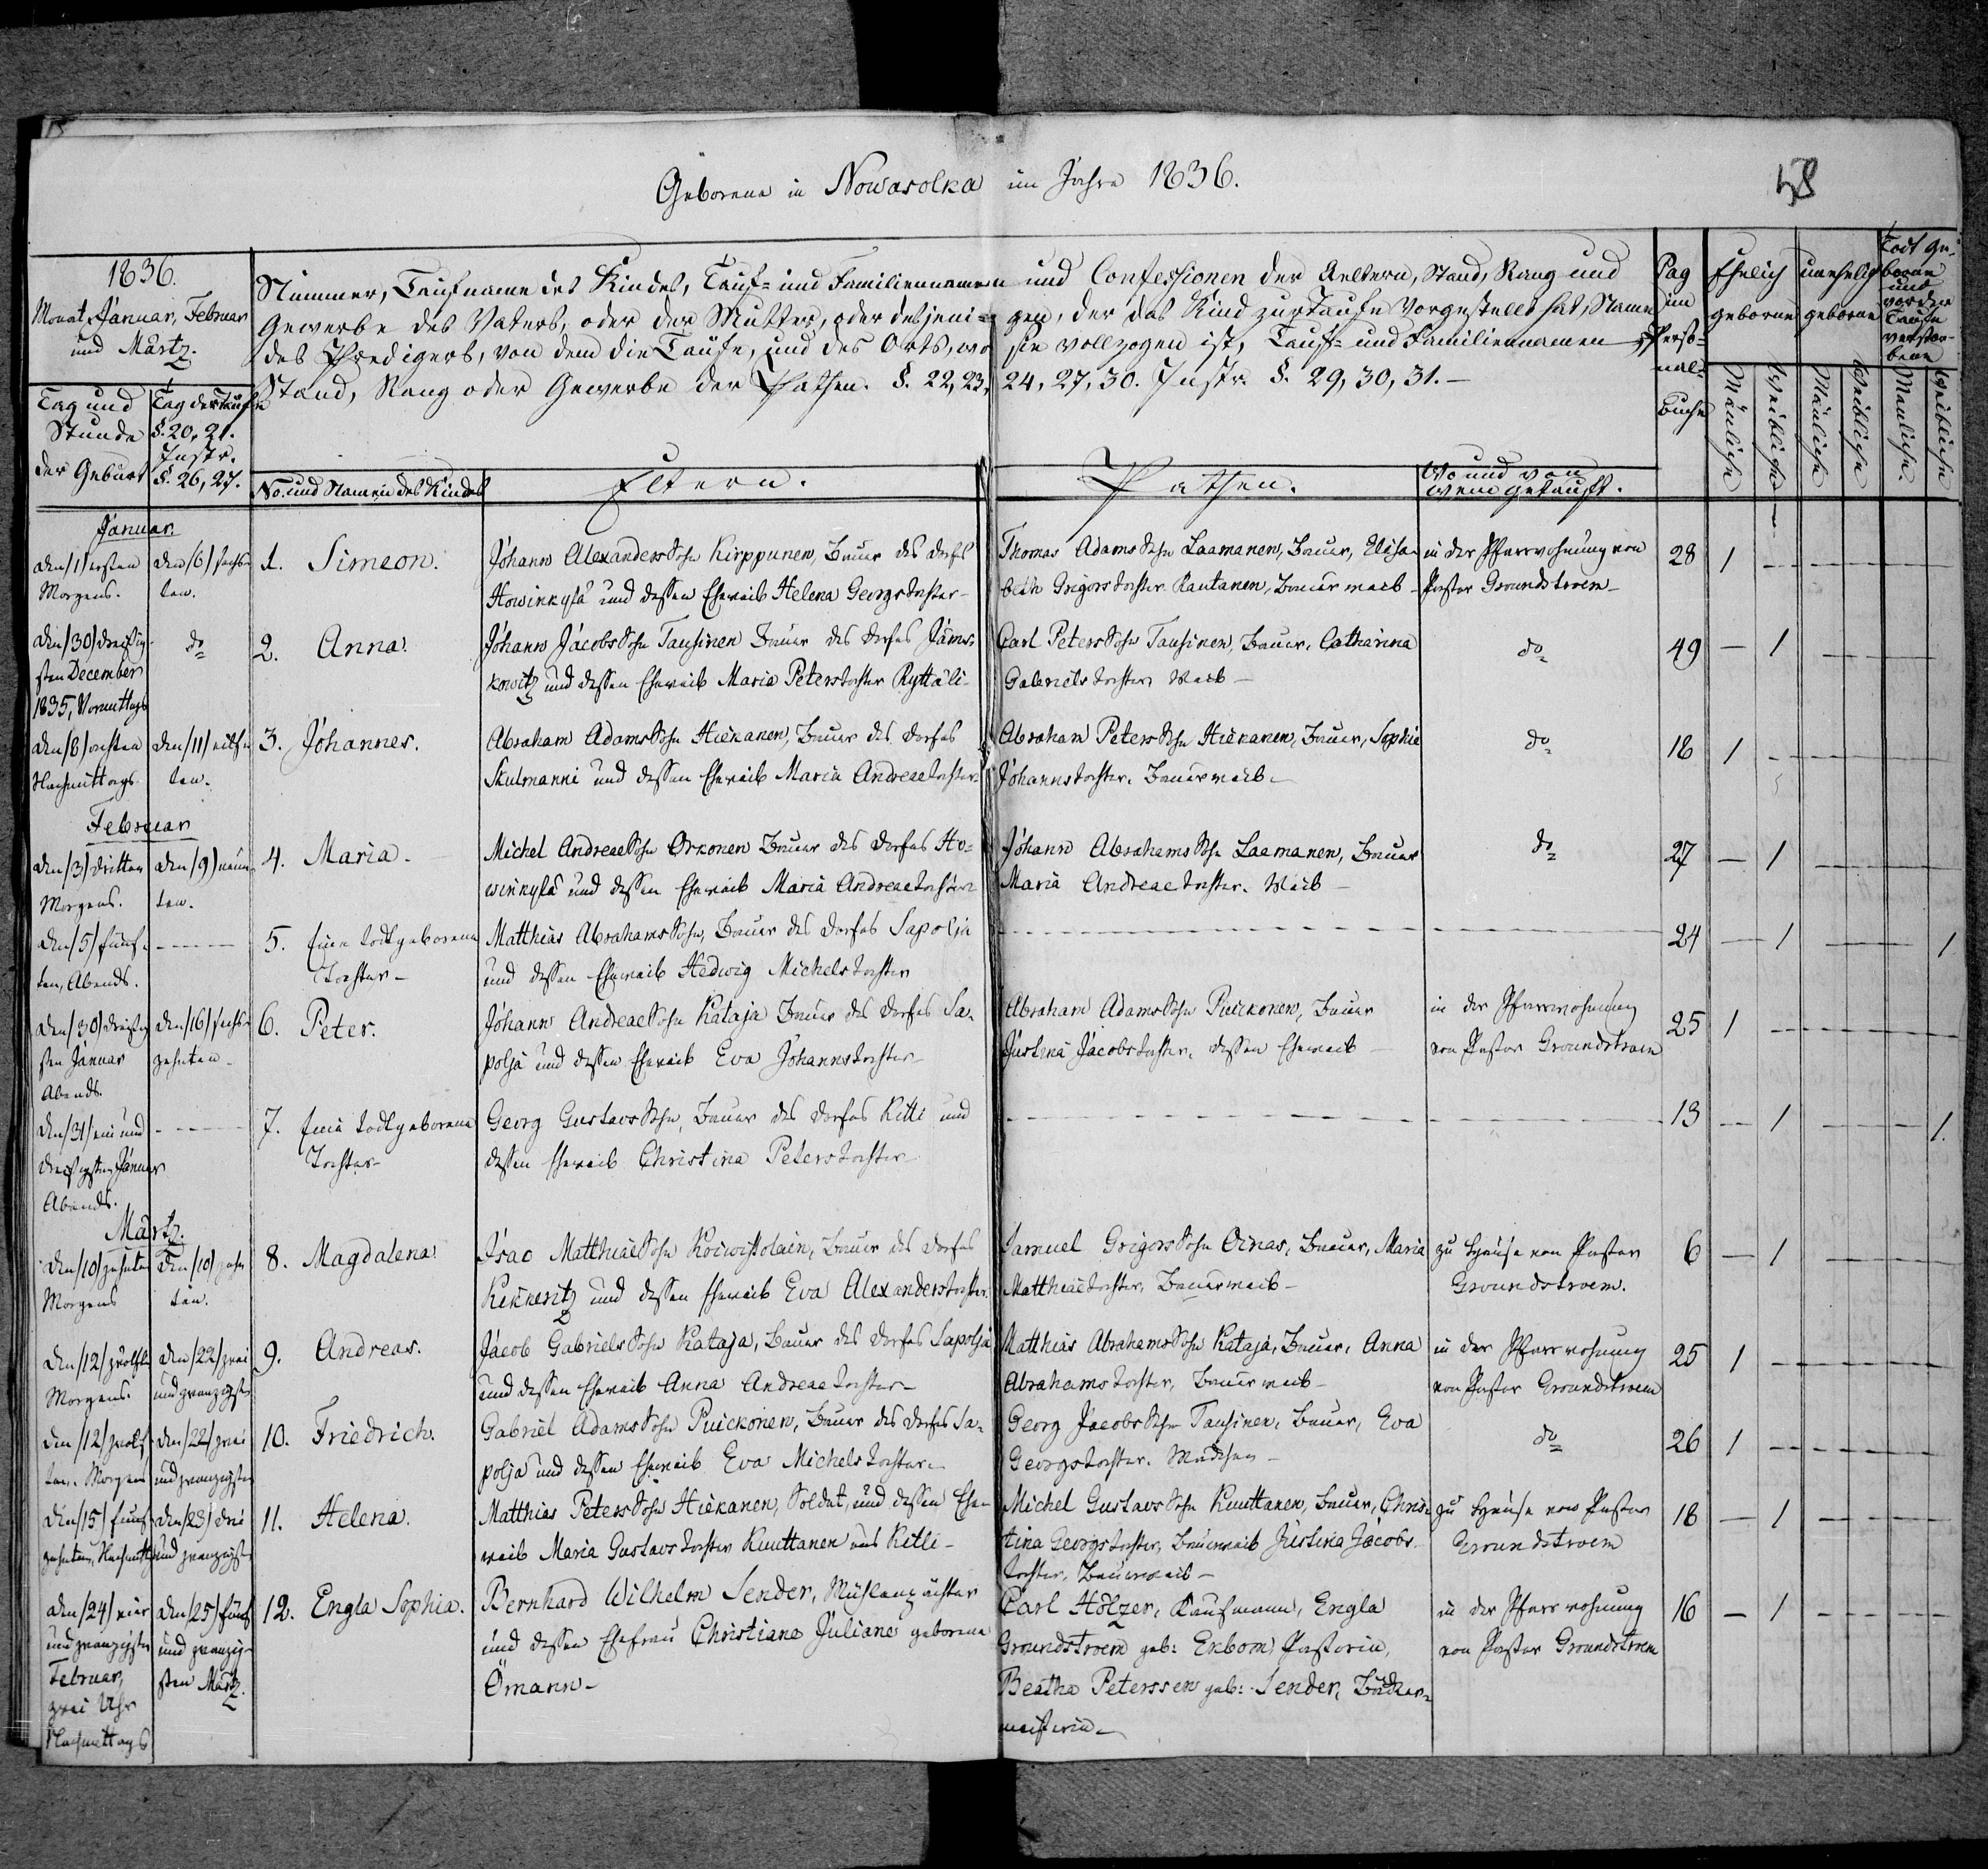 Geborene in Nowasolka im Jahre 1836.
58
1836.
Monat Januar, Februar
und Märtz.
Tag und
Stunde
der Geburt
Tag der Taufe
§. 20, 21.
Instr.
§. 26, 27.
Nummer, Taufname des Kindes, Tauf= und Familiennamen und Confessionen der Aeltern, Stand, Rang und
Gewerbe des Vaters, oder der Mutter, oder desjeni= gen, der das Kind zur Taufe vorgestellt hat, Name
des Predigers, von dem die Taufe, und des Orts, wo sie vollzogen ist, Tauf= und Familiennamen
Stand, Rang oder Gewerbe der Pathen. §. 22, 23, 24, 27, 30. Instr. §. 29, 30, 31.–
No. und Namen des Kindes
Eltern.
Pathen.
Wo und von
wem getauft.
Pag
im
Perso=
nal=
Buche
Ehelich
geborene
unehelich
geborene
Todt ge=
borene
und
vor der
Taufe
verstor=
bene
Mänliche
Weibliche
Mänliche
Weibliche
Mänliche.
Weibliche
Januar.
den (1) ersten
Morgens.
den (6) sechs=
ten.
1. Simeon.
Johann Alexanders Sohn Kirppunen, Bauer des Dorfs
Howinkylä und dessen Eheweib Helena Georgstochter–
Thomas Adams Sohn Laamanen, Bauer, Elisa=
beth Grigorstochter Rautanen, Bauerweib–
in der Pfarrwohnung von
Pastor Groundstroem–
28 1
den (30) dreißig=
sten December
1835, Vormittags
do
2. Anna.
Johann Jacobs Sohn Tausinen Bauer des Dorfes Jäms=
kowitz und dessen Eheweib Maria Peterstochter Ryttäli–
Carl Peters Sohn Tausinen, Bauer, Catharina
Gabrielstochter, Weib–
do
49 – 1
den (8) achten
Nachmittags
den (11) eilf=
ten.
3. Johannes.
Abraham Adams Sohn Hiekanen, Bauer des Dorfes
Skulmanni und dessen Eheweib Maria Andreaetochter
Abraham Peters Sohn Hiekanen, Bauer, Sophia
Johannstochter, Bauerweib–
do
18 1
Februar
den (3) dritten
Morgens.
den (9) neun=
ten.
4. Maria.
Michel Andreae Sohn Orkonen Bauer des Dorfes Ho=
winkylä und dessen Eheweib Maria Andreaetochter
Johann Abrahams Sohn Laamanen, Bauer
Maria Andreaetochter, Weib–
do
27 – 1
den (5) fünf=
ten, Abends.
5. Eine todtgeborene
Tochter–
Matthias Abrahams Sohn, Bauer des Dorfes Sapolja
und dessen Eheweib Hedwig Michelstochter
24 – 1 – 1
den (30) dreißig
sten Januar
Abends.
den (16) sechs=
zehnten–
6. Peter.
Johann Andreae Sohn Kataja Bauer des Dorfes Sa=
polja und dessen Eheweib Eva Johannstochter–
Abraham Adams Sohn Puickonen, Bauer
Justina Jacobstochter, dessen Eheweib–
in der Pfarrwohnung
von Pastor Groundstroem
25 1
den (31) ein und
dreißigsten Januar
Abends.
7. Eine todtgeborene
Tochter–
Georg Gustavs Sohn, Bauer des Dorfes Kitli und
dessen Eheweib Christina Peterstochter
13 – 1 – 1.
Märtz.
den (10) zehnten
Morgens
den (10) zehn
ten.
8. Magdalena
Isac Matthiae Sohn Koiwistolain, Bauer des Dorfes
Kikkeritz und dessen Eheweib Eva Alexanderstochter.
Samuel Grigors Sohn Oinas, Bauer, Maria
Matthiaetochter, Bauerweib–
zu Hause von Pastor
Groundstroem.
6 – 1
den (12) zwölften
Morgens.
den (22) zwei
und zwanzigsten
9. Andreas.
Jacob Gabriels Sohn Kataja, Bauer des Dorfes Sapolja
und dessen Eheweib Anna Andreaetochter–
Matthias Abrahams Sohn Kataja, Bauer, Anna
Abrahamstochter, Bauerweib–
in der Pfarrwohnung
von Pastor Groundstroem
25 1
den (12) zwölf=
ten. Morgens
den (22) zwei
und zwanzigsten
10. Friedrich.
Gabriel Adams Sohn Puickonen, Bauer des Dorfes Sa=
polja und dessen Eheweib Eva Michelstochter–
Georg Jacobs Sohn Tausinen, Bauer, Eva
Georgstochter. Mädchen–
do
26 1
den (15) fünf=
zehnten, Nachmittags
den (23) drei
und zwanzigsten
11. Helena.
Matthias Peters Sohn Hiekanen, Soldat, und dessen Ehe=
weib Maria Gustavstochter Kuuttanen aus Kitli–
Michel Gustavs Sohn Kuuttanen, Bauer, Chris=
tina Georgstochter, Bauerweib Justina Jacobs
tochter, Bauerweib–
zu Hause von Pastor
Groundstroem
18 – 1
den (24) vier
und zwanzigsten
Februar,
zwei Uhr
Nachmittags
den (25) fünf
und zwanzig=
sten Märtz.
12. Engla Sophia.
Bernhard Wilhelm Sender, Mühlenpächter
und dessen Ehefrau Christiane Juliane geborene
Ömann–
Carl Hölzer, Kaufmann, Engla
Groundstroem geb: Enbom, Pastorin,
Beatha Peterssen geb: Sender, Bäcker=
meisterin–
in der Pfarrwohnung
von Pastor Groundstroem
16 – 1